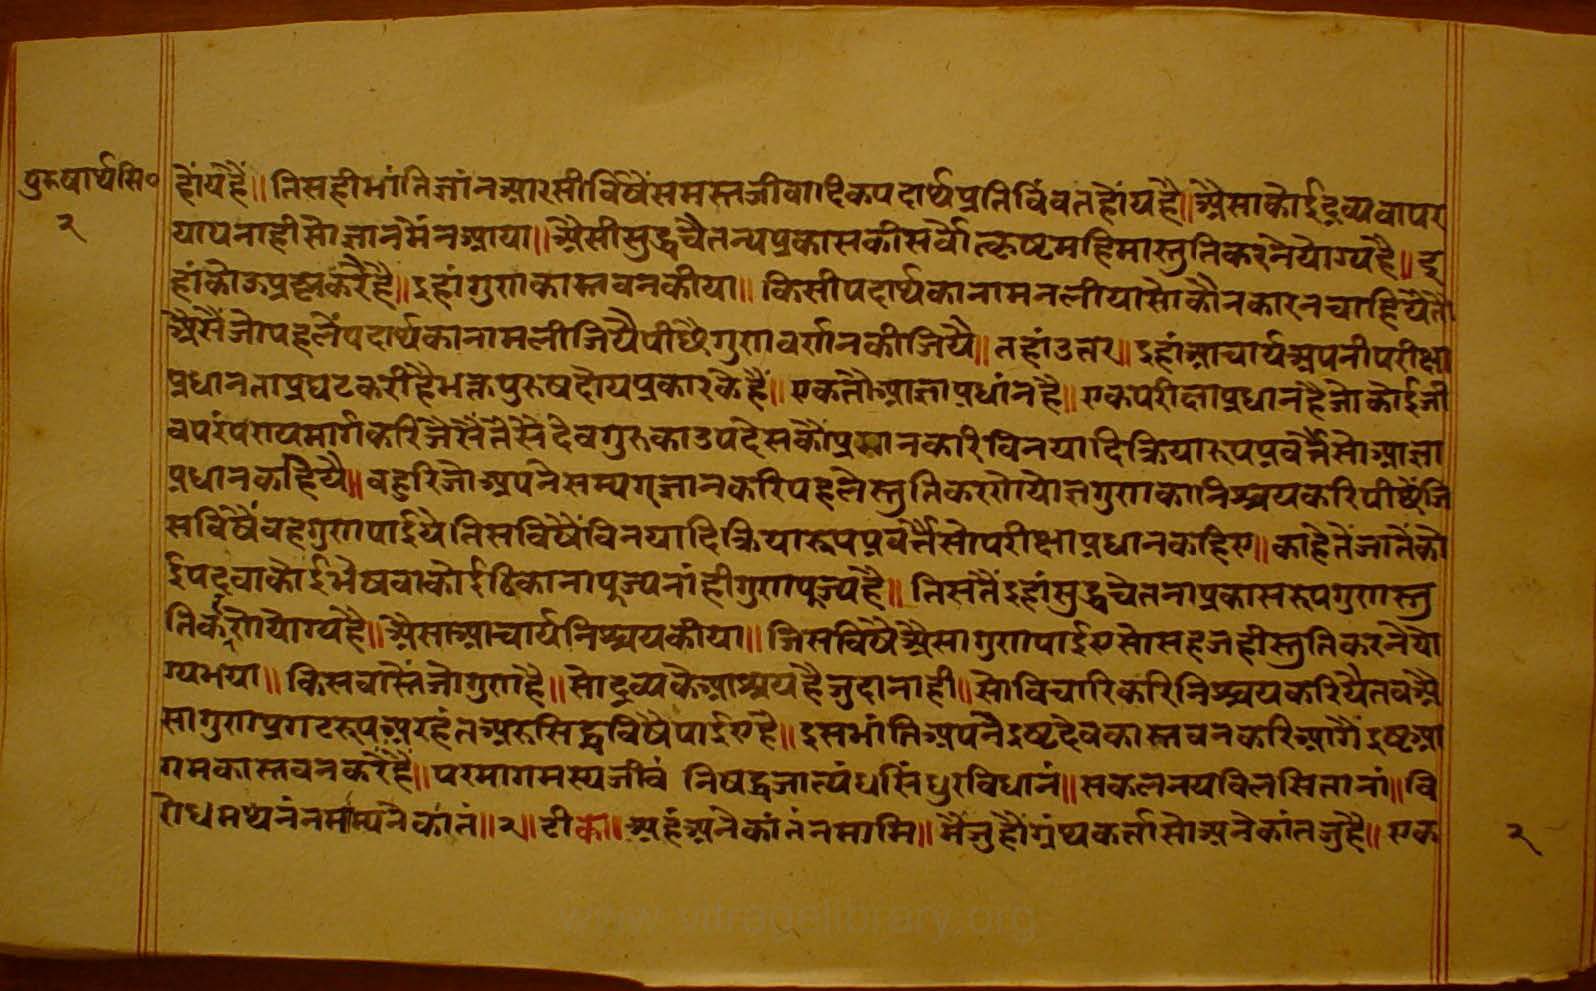 पुरुषार्थसि०
२
होयहैं॥ तिसहीभांतिज्ञांनआरसीविषैंसमस्तजीवादिकपदार्थप्रतिविंवतहोंयहै॥ अैसाकोईद्रव्यवापर
यायनाहीसोज्ञानमेंनआया॥ अैसीसुद्धचैतन्यप्रकासकीसर्वोत्कृष्टमहिमास्तुतिकरनेयोग्यहै॥ इ
हांकोऊप्रश्नकरैहै॥ इहांगुणकास्तवनकीया॥ किसीपदार्थकानामनलीयासोकौनकारनचाहियेतो
अैसैंजोपहलेंपदार्थकानामलीजियैपीछैगुणवर्णनकीजियै॥ तहांउतर॥ इहांआचार्यअपनीपरीक्षा
प्रधानताप्रघटकरीहैभक्तपुरुषदोयप्रकारकेहैं॥ एकतौआज्ञाप्रधांनहै॥ एकपरीक्षाप्रधानहैजोकोईजी
वपरंपरायमार्गकरिजैसैंतैसैदेवगुरुकाउपदेसकौंप्रमानकरिविनयादिक्रियारूपप्रवर्तैसोआज्ञा
प्रधानकहियै॥ बहुरिजोअपनेसम्यग्ज्ञानकरिपहलेस्तुतिकरणेयोज्ञगुणकानिश्चयकरिपीछैंजि
सविषैंवहगुणपाईयैतिसविषैंविनयादिक्रियारूपप्रवर्तैसोपरीक्षाप्रधानकहिए॥ काहेतेंजातैंको
ईपदवाकोईभेषवाकोईठिकानापुज्यनांहीगुणपूज्यहै॥ तिसतैंइहांसुद्धचेतनाप्रकासरूपगुणस्तु
तिकरणेयोग्यहै॥ अैसाआचार्यनिश्चयकीया॥ जिसविषैअैसागुणपाईएसोसहजहीस्तुतिकरनेयो
ग्यभया॥ किसवास्तैंजोगुणहै॥ सोद्रव्यकेआश्रयहैजुदानाही॥ सोविचारिकरिनिश्चयकरियैतवअै
सागुणप्रगटरूपअरहंतअरुसिद्धविषैपाईएहै॥ इसभांतिअपनेइष्टदेवकास्तवनकरिआगैंइष्टआ
गमकास्तवनकरैंहैं॥ परमागमस्यजीवं निषद्धजात्यंधसिंधुरविधानं॥ सकलनयविलसितानां॥ वि
रोधमथनंनमाम्यनेकांतं॥२॥ टीका॥ अहंअनेकांतंनमामि॥ मैंजुहौंग्रंथकर्तासोअनेकांतजुहै॥ एक
२
www.vitragelibrary.org